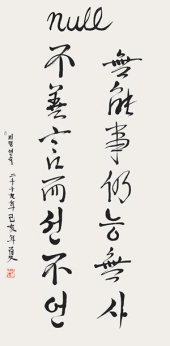 null
無能事仍능無사
不善言而선不언
二千十九年 己亥年